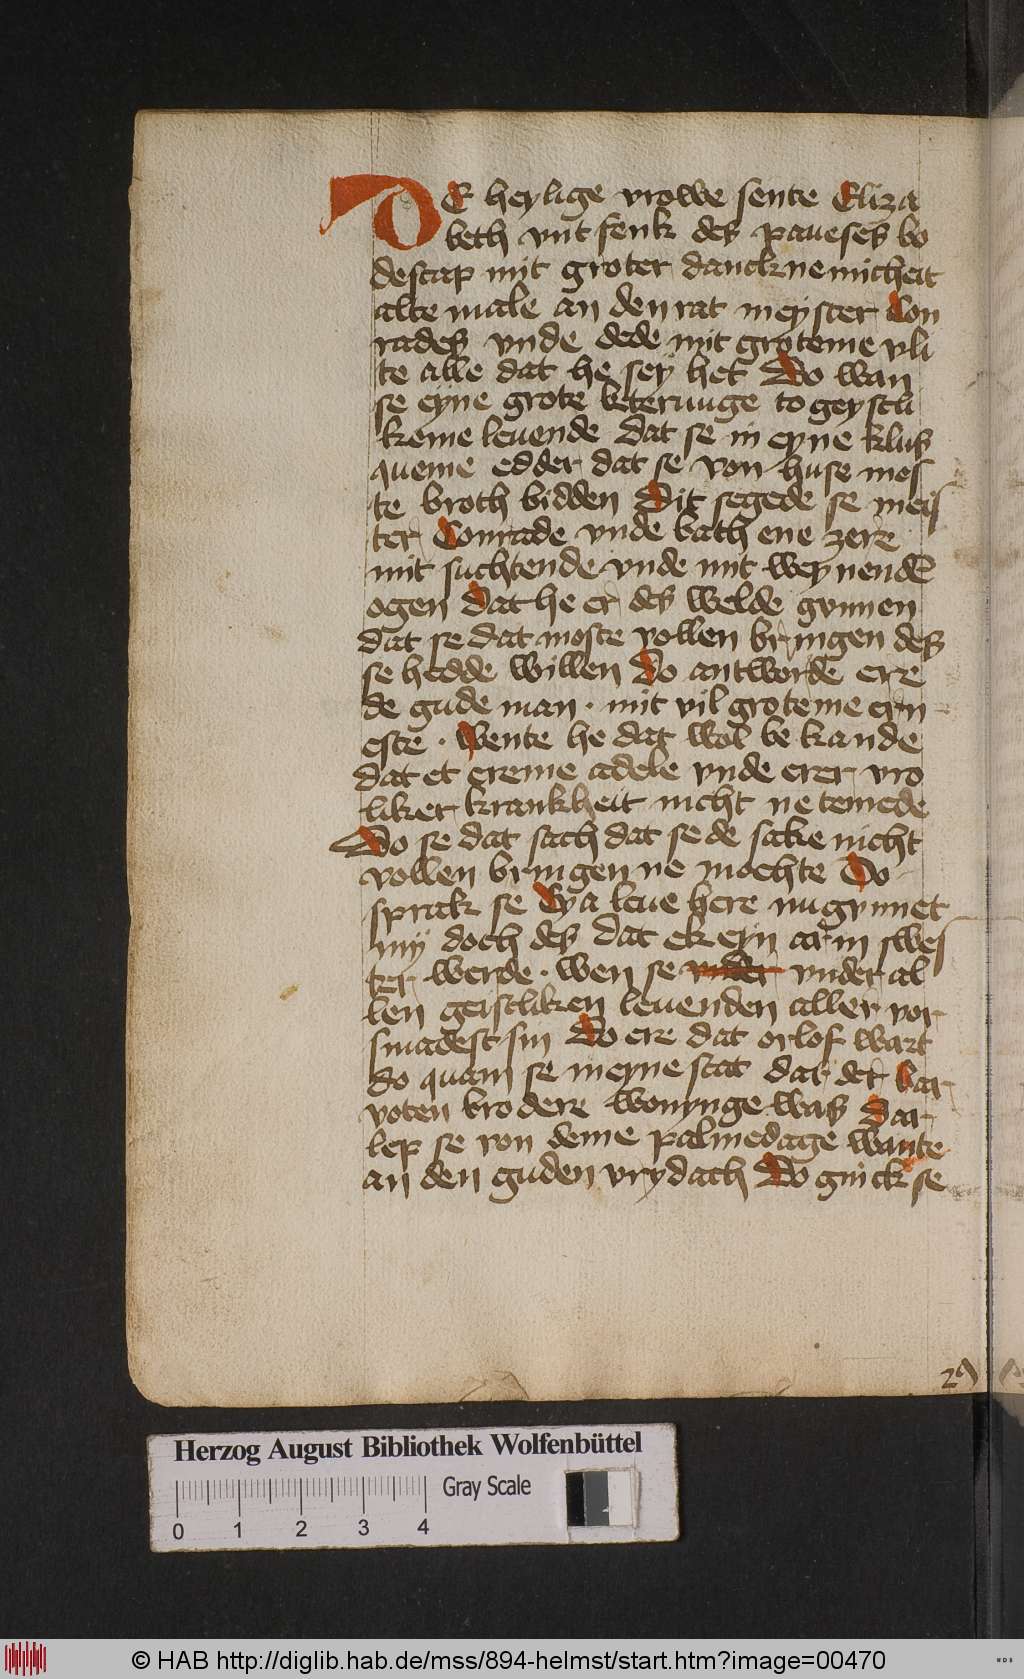 DE heylige vrowe sente Eliza
beth vntfenk des paueses bo
descap mit groter dancknemicheit
alte male an den rat meyster Con
rades vnde dede mit groteme vli
te alle dat he sey het Do wan
se eyne grote beteruuge to geystli
keme leuende dat se in eyne klus
queme edder dat se von huse mes
te broth bidden Dit segede se meis
ter Conrade vnde bath ene zere
mit suchtende vnde mit weynendē
ogen dat he er des welde gunnen
dat se dat moste vollen bringen des
se hedde willen Do antworde ere
de gude man · mit vil groteme ern
este · Wente he dat wol be kande
dat et creme adele vnde erer vro
liker krankheit nicht ne temede
Do se dat sach dat se de sake nicht
vollen bringen ne mochte Do
sprak se Eya leue here nu gunnet
mij doch des dat ek eyn arm swes
ter werde · wen se vnder vnder al
len geistliken leuenden aller vor
smadest sin Do ere dat orlof wart
do quam se in eyne stat dar der bar
voten brodere wonynge was dar
lep se von deme palmedage wante
an den guden vrydach Do ginck se
29
Herzog August Bibliothek Wolfenbüttel
0 1 2 3 4 Gray Scale
© HAB http://diglib.hab.de/mss/894-helmst/start.htm?image=00470